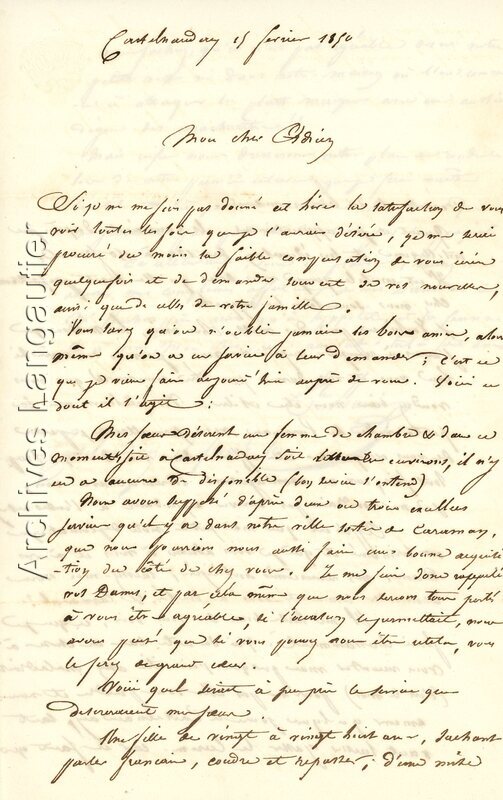 Castelnaudary 15 février 1850
Mon cher Adrien
Si je ne me suis pas donné cet hiver la satisfaction de vous
voir toutes les fois que je l'aurais désiré, je me serai
procuré du moins la faible compensation de vous écrire
quelquefois et de demander souvent de vos nouvelles,
ainsi que de celles de votre famille.
Vous savez qu'on n'oublie jamais les bons amis, alors
même qu'on a un service à leur demander; c'est ce
que je viens faire aujourd'hui auprès de vous. Voici ce
dont il s'agit:
Mes sœurs désirent une femme de chambre & dans ce
moment soit à Castelnaudary soit environs, il n'y
en a aucune de disponible (bon service s'entend)
Nous avons supposé d'après deux ou trois excellens
services qu'il y a dans notre ville sortis de Caraman,
que nous pourrions nous aussi faire une bonne acquisi-
tion du côté de chez vous. Je me suis donc rappelé
vos Dames, et par cela même que nous serions tous porté
à vous être agréable, si l'occasion le permettait, nous
avons pensé que si vous pouvez nous être utiles, vous
le ferez de grand cœur.
Voici quel serait à peu près le service que
désireraient mes sœurs.
Une fille de vingt à vingt huit ans, sachant
parler français, coudre et repasser; d'une
Archives Langautier